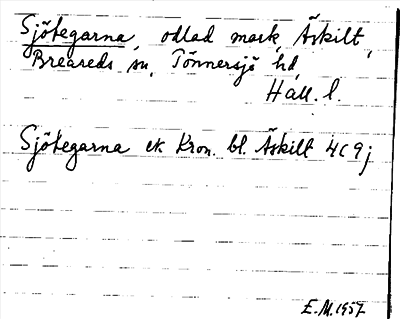 Sjötegarna, odlad mark, Äskilt,
Breareds sn, Tönnersjö hd,
Hall. l.
Sjötegarna ek Kron. bl. Äskilt 4C9j
E.M. 1957